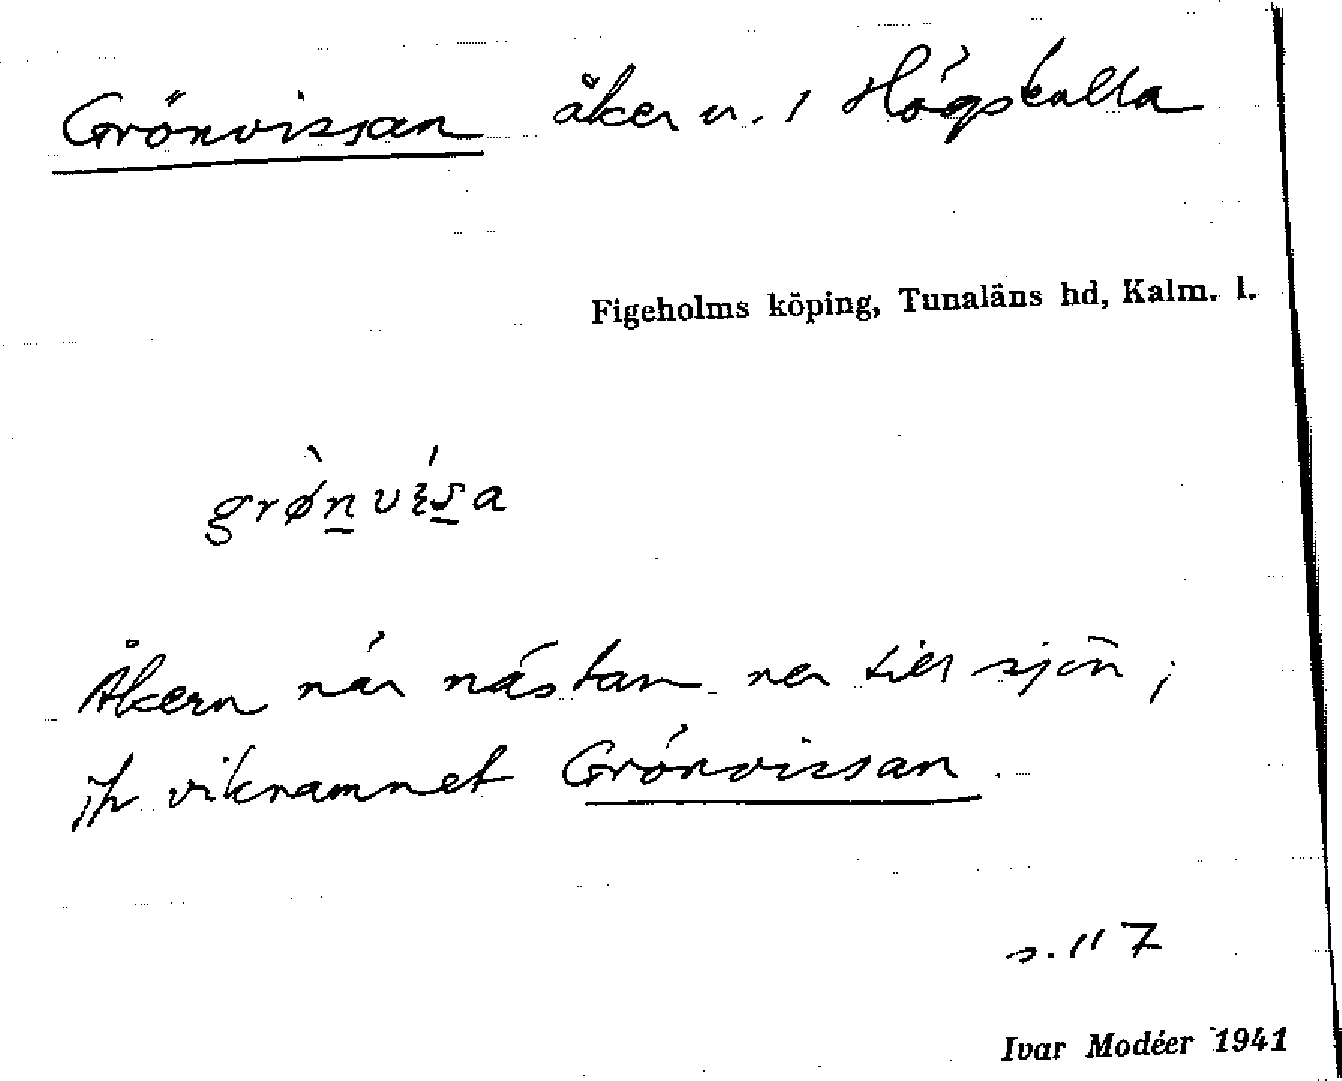 Grönvissan åker u. 1 Högskulla
Figeholms köping, Tunaläns hd, Kalm. l.
grø̀nvísa
Åkern når nästan ner till sjön;
jfr viknamnet Grönvissan.
s. 117
Ivar Modéer 1941